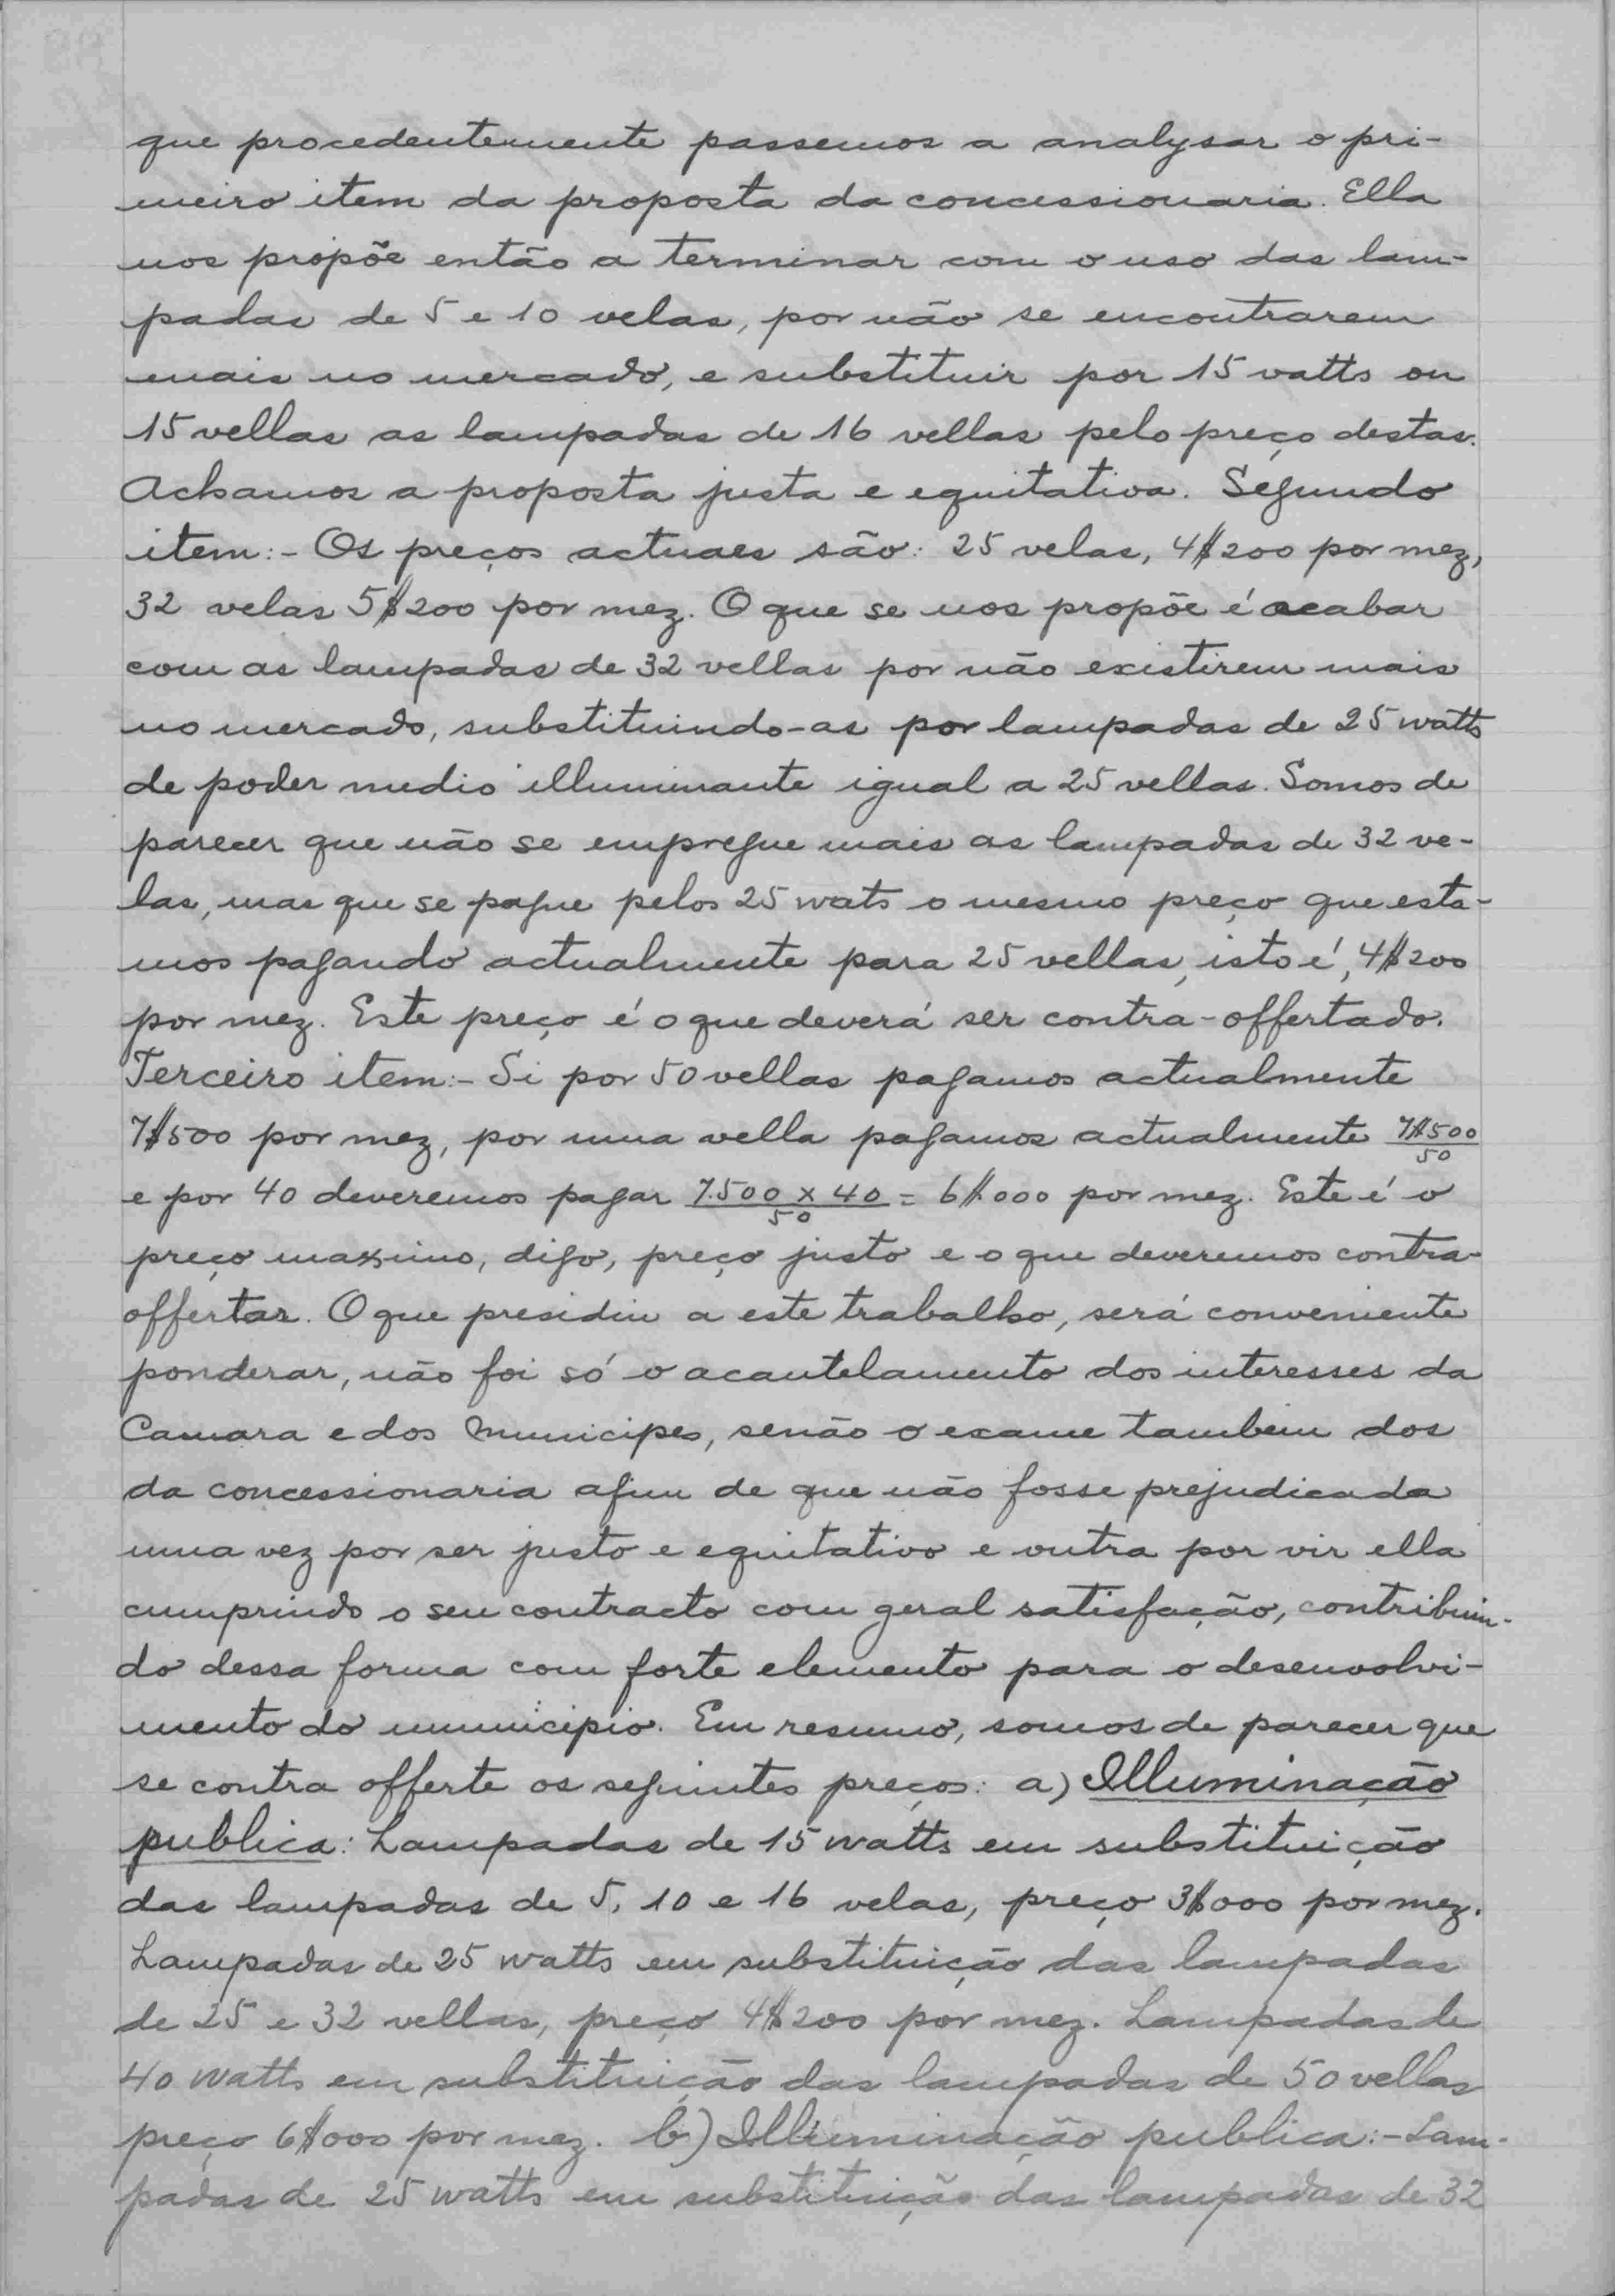 que procedentemente passemos a analysar o pri-
meiro item da proposta da concessionaria. Ella
nos propõe então a terminar com o uso das lam-
padas de 5 e 10 velas, por não se encontrarem
mais no mercado, e substituir por 15 vatts ou
15 vellas as lampadas de 16 vellas pelo preço destas.
Achamos a proposta justa e equitativa. Segundo
item:- Os preços actuaes são: 25 velas, 4$200 por mez,
32 velas 5$200 por mez. O que se nos propõe é acabar
com as lampadas de 32 vellas por não existirem mais
no mercado, substituindo-as por lampadas de 25 watts
de poder medio illuminante igual a 25 vellas. Somos de
parecer que não se empregue mais as lampadas de 32 ve-
las, mas que se pague pelos 25 wats o mesmo preço que esta-
mos pagando actualmente para 25 vellas, isto é, 4$200
por mez. Este preço é o que deverá ser contra-offertado.
Terceiro item:- Si por 50 vellas pagamos actualmente
7$500 por mez, por uma vella pagamos actualmente 7$500/50
e por 40 deveremos pagar 7.500 x 40/50 = 6$000 por mez. Este é o
preço maximo, digo, preço justo e o que deveremos contra-
offertar. O que presidiu a este trabalho, será conveniente
ponderar, não foi só o acautelamento dos interesses da
Camara e dos Municipes, senão o exame tambem dos
da concessionaria afim de que não fosse prejudicada
uma vez por ser justo e equitativo e outra por vir ella
cumprindo o seu contracto com geral satisfação, contribuin-
do dessa forma com forte elemento para o desenvolvi-
mento do municipio. Em resumo, somos de parecer que
se contra offerte os seguintes preços: a) Illuminação
publica: Lampadas de 15 watts em substituição
das lampadas de 5, 10 e 16 velas, preço 3$000 por mez.
Lampadas de 25 watts em substituição das lampadas
de 25 e 32 vellas, preço 4$200 por mez. Lampadas de
40 watts em substituição das lampadas de 50 vellas
preço 6$000 por mez. b) Illuminação publica:- Lam-
padas de 25 watts em substituição das lampadas de 32